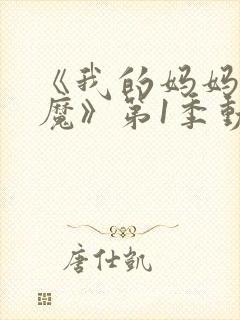 《我的妈妈
魔》第1季動
唐仕凯